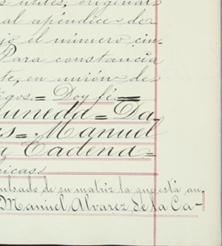 s útiles, originar
al apéndice de
jo el número cin-
Para constancia
te, en unión de
igos.= Doy fé=
uneda= Da
s= Manuel
y Cadena=
icass
mbsado de su matriz la que está au
Manuel Alvarez de la Ca-